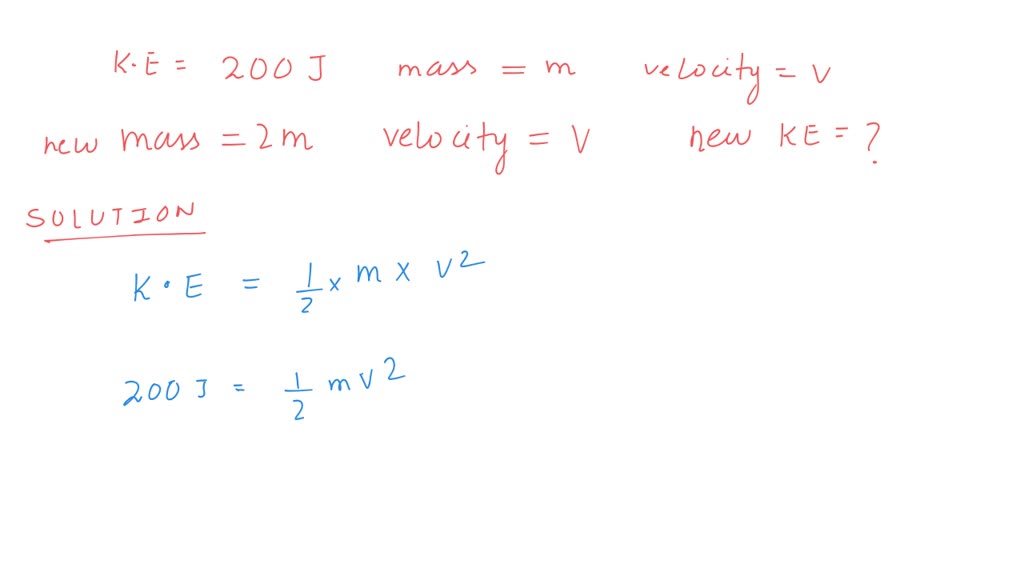 K·E = 200 J mass = m velocity = v
new mass = 2m velocity = V new KE = ?
SOLUTION
K·E = 1/2 x m x v²
200 J = 1/2 m v²